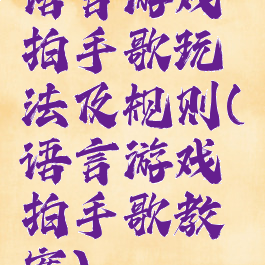 语言游戏
拍手歌玩
法及规则(
语言游戏
拍手歌教
案)